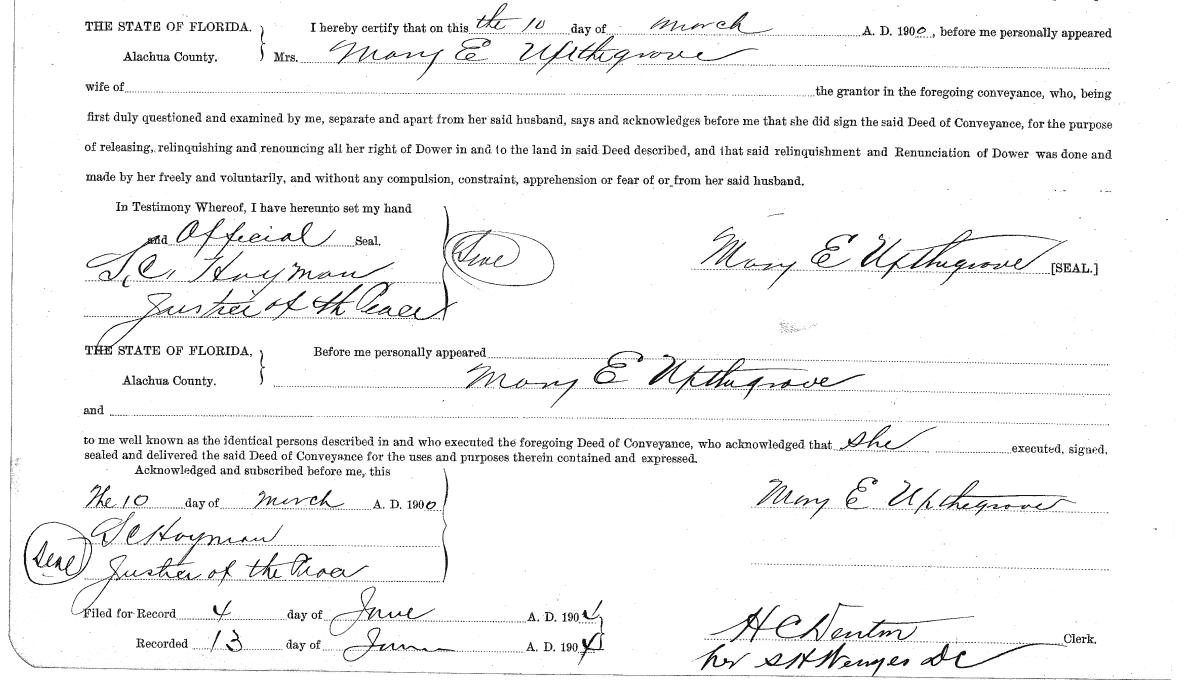 THE STATE OF FLORIDA. } I hereby certify that on this the 10 day of March A. D. 1900, before me personally appeared
Alachua County. Mrs. Mary E Upthegrove
wife of the grantor in the foregoing conveyance, who, being
first duly questioned and examined by me, separate and apart from her said husband, says and acknowledges before me that she did sign the said Deed of Conveyance, for the purpose
of releasing, relinquishing and renouncing all her right of Dower in and to the land in said Deed described, and that said relinquishment and Renunciation of Dower was done and
made by her freely and voluntarily, and without any compulsion, constraint, apprehension or fear of or from her said husband.
In Testimony Whereof, I have hereunto set my hand
and Official Seal.
S. C. Hayman
Justice of the Peace
Seal
Mary E Upthegrove [SEAL.]
THE STATE OF FLORIDA, } Before me personally appeared
Alachua County. Mary E Upthegrove
and
to me well known as the identical persons described in and who executed the foregoing Deed of Conveyance, who acknowledged that she executed, signed,
sealed and delivered the said Deed of Conveyance for the uses and purposes therein contained and expressed.
Acknowledged and subscribed before me, this
The 10 day of March A. D. 1900
Mary E Upthegrove
S C Hayman
Seal
Justice of the Peace
Filed for Record 4 day of June A. D. 1904
Recorded 13 day of June A. D. 1904
H C Denton Clerk.
per S H Wenges DC